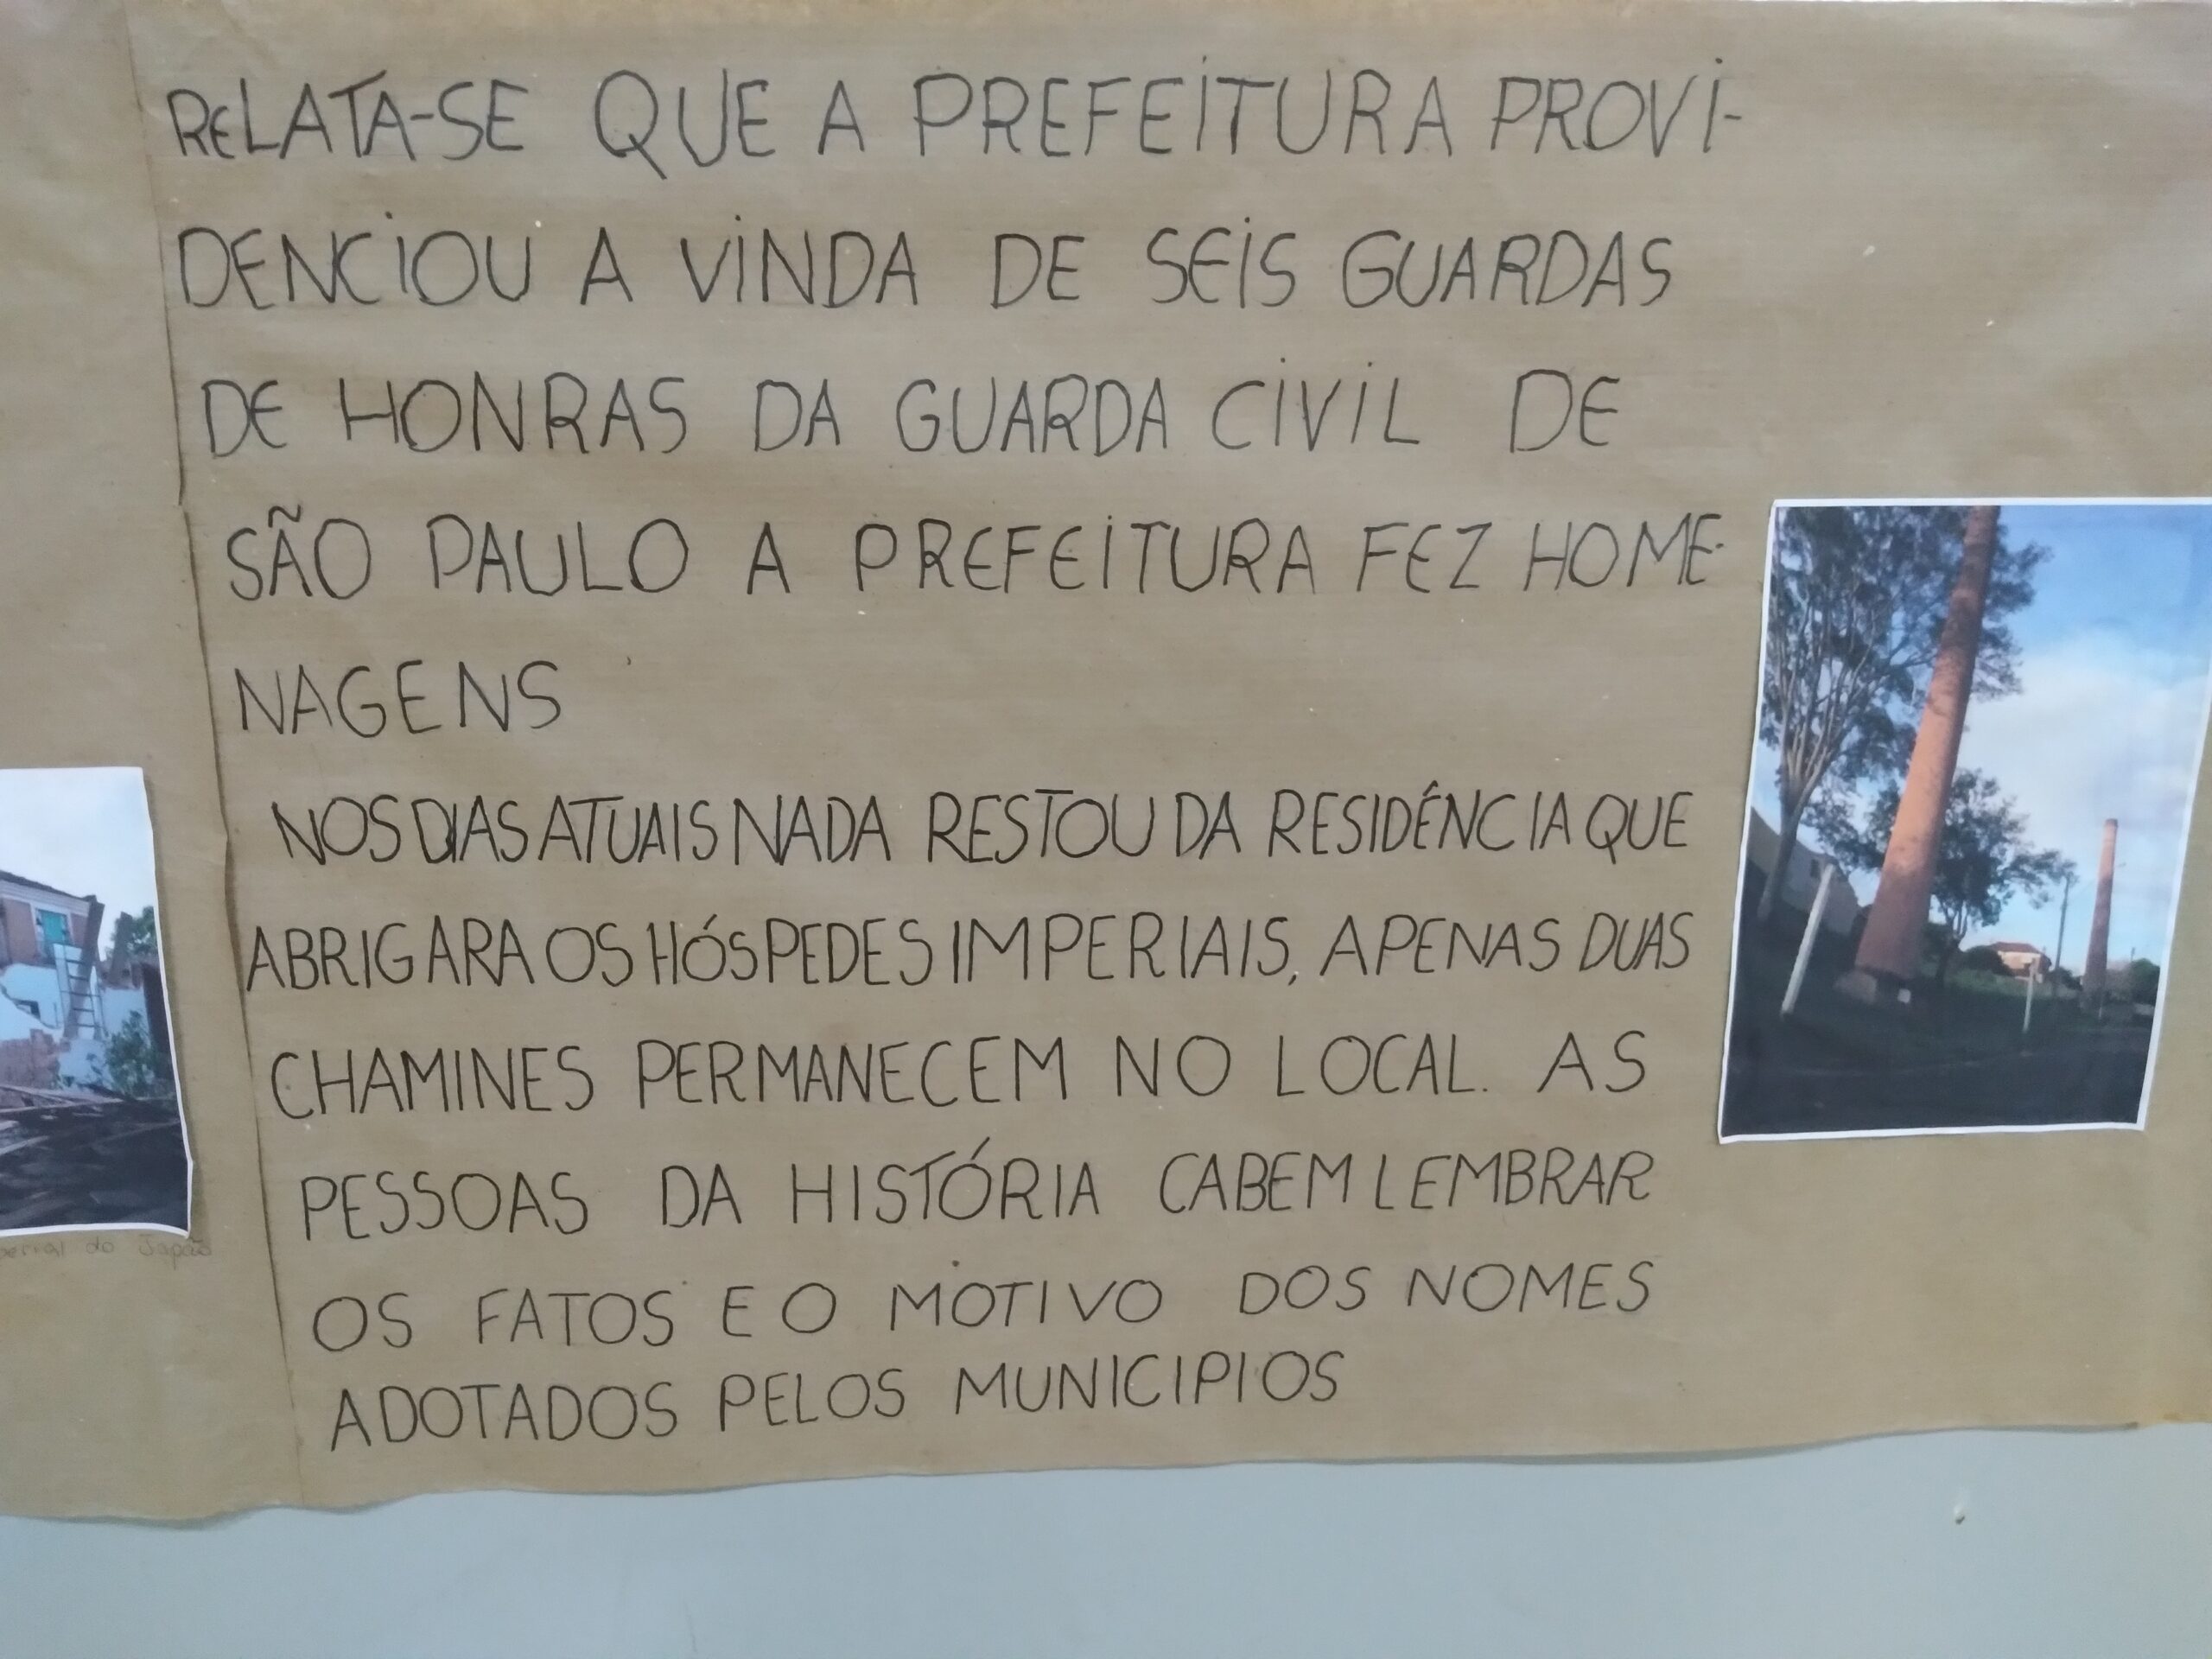 RELATA-SE QUE A PREFEITURA PROVI-
DENCIOU A VINDA DE SEIS GUARDAS
DE HONRAS DA GUARDA CIVIL DE
SÃO PAULO A PREFEITURA FEZ HOME-
NAGENS
NOS DIAS ATUAIS NADA RESTOU DA RESIDÊNCIA QUE
ABRIGARA OS HÓSPEDES IMPERIAIS, APENAS DUAS
CHAMINES PERMANECEM NO LOCAL. AS
PESSOAS DA HISTÓRIA CABEM LEMBRAR
OS FATOS E O MOTIVO DOS NOMES
ADOTADOS PELOS MUNICIPIOS
do Japão